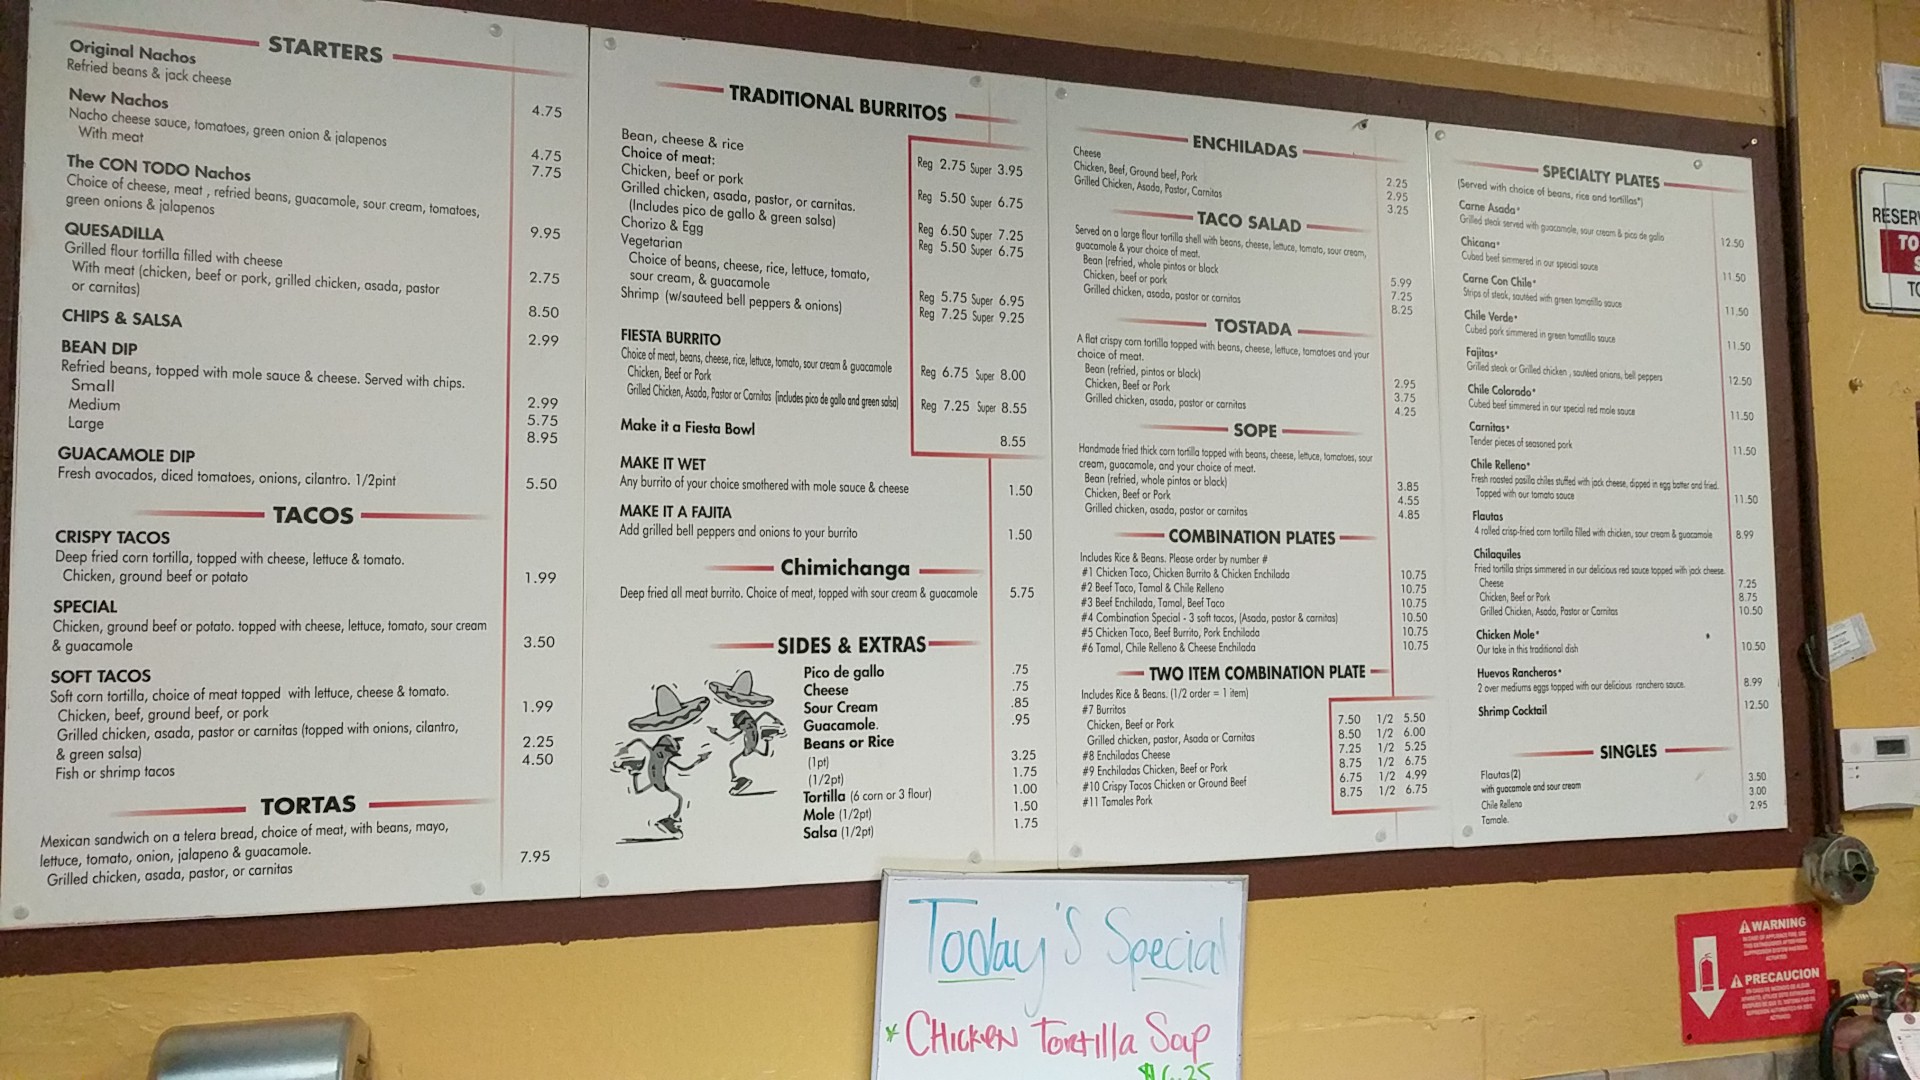 STARTERS
Original Nachos
Refried beans & jack cheese
4.75
New Nachos
Nacho cheese sauce, tomatoes, green onion & jalapenos
4.75
With meat
7.75
The CON TODO Nachos
Choice of cheese, meat , refried beans, guacamole, sour cream, tomatoes,
green onions & jalapenos
9.95
QUESADILLA
Grilled flour tortilla filled with cheese
2.75
With meat (chicken, beef or pork, grilled chicken, asada, pastor
or carnitas)
8.50
CHIPS & SALSA
2.99
BEAN DIP
Refried beans, topped with mole sauce & cheese. Served with chips.
Small 2.99
Medium 5.75
Large 8.95
GUACAMOLE DIP
Fresh avocados, diced tomatoes, onions, cilantro. 1/2pint 5.50
TACOS
CRISPY TACOS
Deep fried corn tortilla, topped with cheese, lettuce & tomato.
Chicken, ground beef or potato 1.99
SPECIAL
Chicken, ground beef or potato. topped with cheese, lettuce, tomato, sour cream
& guacamole 3.50
SOFT TACOS
Soft corn tortilla, choice of meat topped with lettuce, cheese & tomato.
Chicken, beef, ground beef, or pork 1.99
Grilled chicken, asada, pastor or carnitas (topped with onions, cilantro,
& green salsa) 2.25
Fish or shrimp tacos 4.50
TORTAS
Mexican sandwich on a telera bread, choice of meat, with beans, mayo,
lettuce, tomato, onion, jalapeno & guacamole.
Grilled chicken, asada, pastor, or carnitas 7.95
TRADITIONAL BURRITOS
Bean, cheese & rice Reg 2.75 Super 3.95
Choice of meat:
Chicken, beef or pork Reg 5.50 Super 6.75
Grilled chicken, asada, pastor, or carnitas.
(Includes pico de gallo & green salsa) Reg 6.50 Super 7.25
Chorizo & Egg Reg 5.50 Super 6.75
Vegetarian
Choice of beans, cheese, rice, lettuce, tomato,
sour cream, & guacamole Reg 5.75 Super 6.95
Shrimp (w/sauteed bell peppers & onions) Reg 7.25 Super 9.25
FIESTA BURRITO
Choice of meat, beans, cheese, rice, lettuce, tomato, sour cream & guacamole
Chicken, Beef or Pork Reg 6.75 Super 8.00
Grilled Chicken, Asada, Pastor or Carnitas (includes pico de gallo and green salsa) Reg 7.25 Super 8.55
Make it a Fiesta Bowl 8.55
MAKE IT WET
Any burrito of your choice smothered with mole sauce & cheese 1.50
MAKE IT A FAJITA
Add grilled bell peppers and onions to your burrito 1.50
Chimichanga
Deep fried all meat burrito. Choice of meat, topped with sour cream & guacamole 5.75
SIDES & EXTRAS
Pico de gallo .75
Cheese .75
Sour Cream .85
Guacamole. .95
Beans or Rice
(1pt) 3.25
(1/2pt) 1.75
Tortilla (6 corn or 3 flour) 1.00
Mole (1/2pt) 1.50
Salsa (1/2pt) 1.75
ENCHILADAS
Cheese 2.25
Chicken, Beef, Ground beef, Pork 2.95
Grilled Chicken, Asada, Pastor, Carnitas 3.25
TACO SALAD
Served on a large flour tortilla shell with beans, cheese, lettuce, tomato, sour cream,
guacamole & your choice of meat.
Bean (refried, whole pintos or black 5.99
Chicken, beef or pork 7.25
Grilled chicken, asada, pastor or carnitas 8.25
TOSTADA
A flat crispy corn tortilla topped with beans, cheese, lettuce, tomatoes and your
choice of meat.
Bean (refried, pintos or black) 2.95
Chicken, Beef or Pork 3.75
Grilled chicken, asada, pastor or carnitas 4.25
SOPE
Handmade fried thick corn tortilla topped with beans, cheese, lettuce, tomatoes, sour
cream, guacamole, and your choice of meat.
Bean (refried, whole pintos or black) 3.85
Chicken, Beef or Pork 4.55
Grilled chicken, asada, pastor or carnitas 4.85
COMBINATION PLATES
Includes Rice & Beans. Please order by number #
#1 Chicken Taco, Chicken Burrito & Chicken Enchilada 10.75
#2 Beef Taco, Tamal & Chile Relleno 10.75
#3 Beef Enchilada, Tamal, Beef Taco 10.75
#4 Combination Special - 3 soft tacos, (Asada, pastor & carnitas) 10.50
#5 Chicken Taco, Beef Burrito, Pork Enchilada 10.75
#6 Tamal, Chile Relleno & Cheese Enchilada 10.75
TWO ITEM COMBINATION PLATE
Includes Rice & Beans. (1/2 order = 1 item)
#7 Burritos
Chicken, Beef or Pork 7.50 1/2 5.50
Grilled chicken, pastor, Asada or Carnitas 8.50 1/2 6.00
#8 Enchiladas Cheese 7.25 1/2 5.25
#9 Enchiladas Chicken, Beef or Pork 8.75 1/2 6.75
#10 Crispy Tacos Chicken or Ground Beef 6.75 1/2 4.99
#11 Tamales Pork 8.75 1/2 6.75
SPECIALTY PLATES
(Served with choice of beans, rice and tortillas*)
Carne Asada*
Grilled steak served with guacamole, sour cream & pico de gallo 12.50
Chicana*
Cubed beef simmered in our special sauce 11.50
Carne Con Chile*
Strips of steak, sautéed with green tomatillo sauce 11.50
Chile Verde*
Cubed pork simmered in green tomatillo sauce 11.50
Fajitas*
Grilled steak or Grilled chicken , sautéed onions, bell peppers 12.50
Chile Colorado*
Cubed beef simmered in our special red mole sauce 11.50
Carnitas*
Tender pieces of seasoned pork 11.50
Chile Relleno*
Fresh roasted pasilla chiles stuffed with jack cheese, dipped in egg batter and fried.
Topped with our tomato sauce 11.50
Flautas
4 rolled crisp-fried corn tortilla filled with chicken, sour cream & guacamole 8.99
Chilaquiles
Fried tortilla strips simmered in our delicious red sauce topped with jack cheese.
Cheese 7.25
Chicken, Beef or Pork 8.75
Grilled Chicken, Asada, Pastor or Carnitas 10.50
Chicken Mole*
Our take in this traditional dish 10.50
Huevos Rancheros*
2 over mediums eggs topped with our delicious ranchero sauce. 8.99
Shrimp Cocktail 12.50
SINGLES
Flautas (2) 3.50
with guacamole and sour cream
Chile Relleno 3.00
Tamale. 2.95
Today's Special
* CHICKEN Tortilla Soup
RESERV
TO
WARNING
PRECAUCION